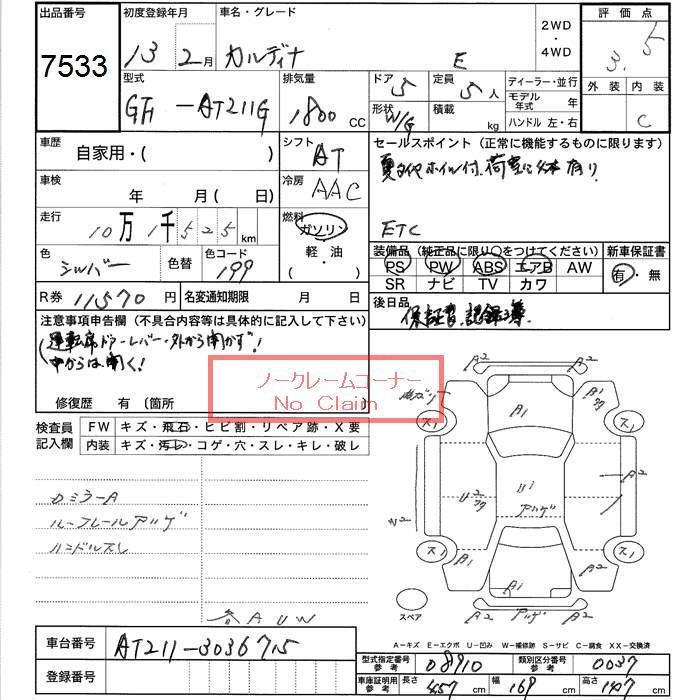 出品番号
7533
初度登録年月
13 2月
車名・グレード
カルディナ E
2WD
・
4WD
評価点
3.5
外装 内装
C
型式
GH-AT211G
排気量
1800 CC
ドア 5
定員 5人
形状 W/G
積載 kg
ディーラー・並行
モデル年式 年
ハンドル 左・右
車歴
自家用・( )
シフト
AT
セールスポイント(正常に機能するものに限ります)
夏タイヤホイル付、荷室に 有り
ETC
車検
年 月( 日)
冷房
AAC
走行
10万1千525km
燃料
ガソリン
・
軽・油
( )
色
シルバー
色替
色コード
199
装備品(純正品に限り〇をつけてください)
PS PW ABS エアB AW
SR ナビ TV カワ
新車保証書
有・無
R券 11,570円
名変通知期限 月 日
後日品
保証書、記録簿
注意事項申告欄(不具合内容等は具体的に記入して下さい)
運転席ドアーレバー・外から開かず!
中からは開く!
修復歴 有(箇所 )
ノークレームコーナー
No Claim
検査員
記入欄
FW キズ・飛石・ヒビ割・リペア跡・X要
内装 キズ・汚レ・コゲ・穴・スレ・キレ・破レ
ロミラーA
ルーフレールアツゲ
ハンドルスレ
各AUW
A2 A2
A1
ス1 ス1
A1
U2 U1 A2
アツゲ
W2
ス1 ス1
A1 A1 A2
A2 アツゲ A2
スペア
A−キズ E−エクボ U−凹み W−補修跡 S−サビ C−腐食 XX−交換済
車台番号 AT211-3036715
登録番号
型式指定番号参考 08910
類別区分番号参考 0037
車庫証明用参考 長さ 457cm 幅 169cm 高さ 147cm